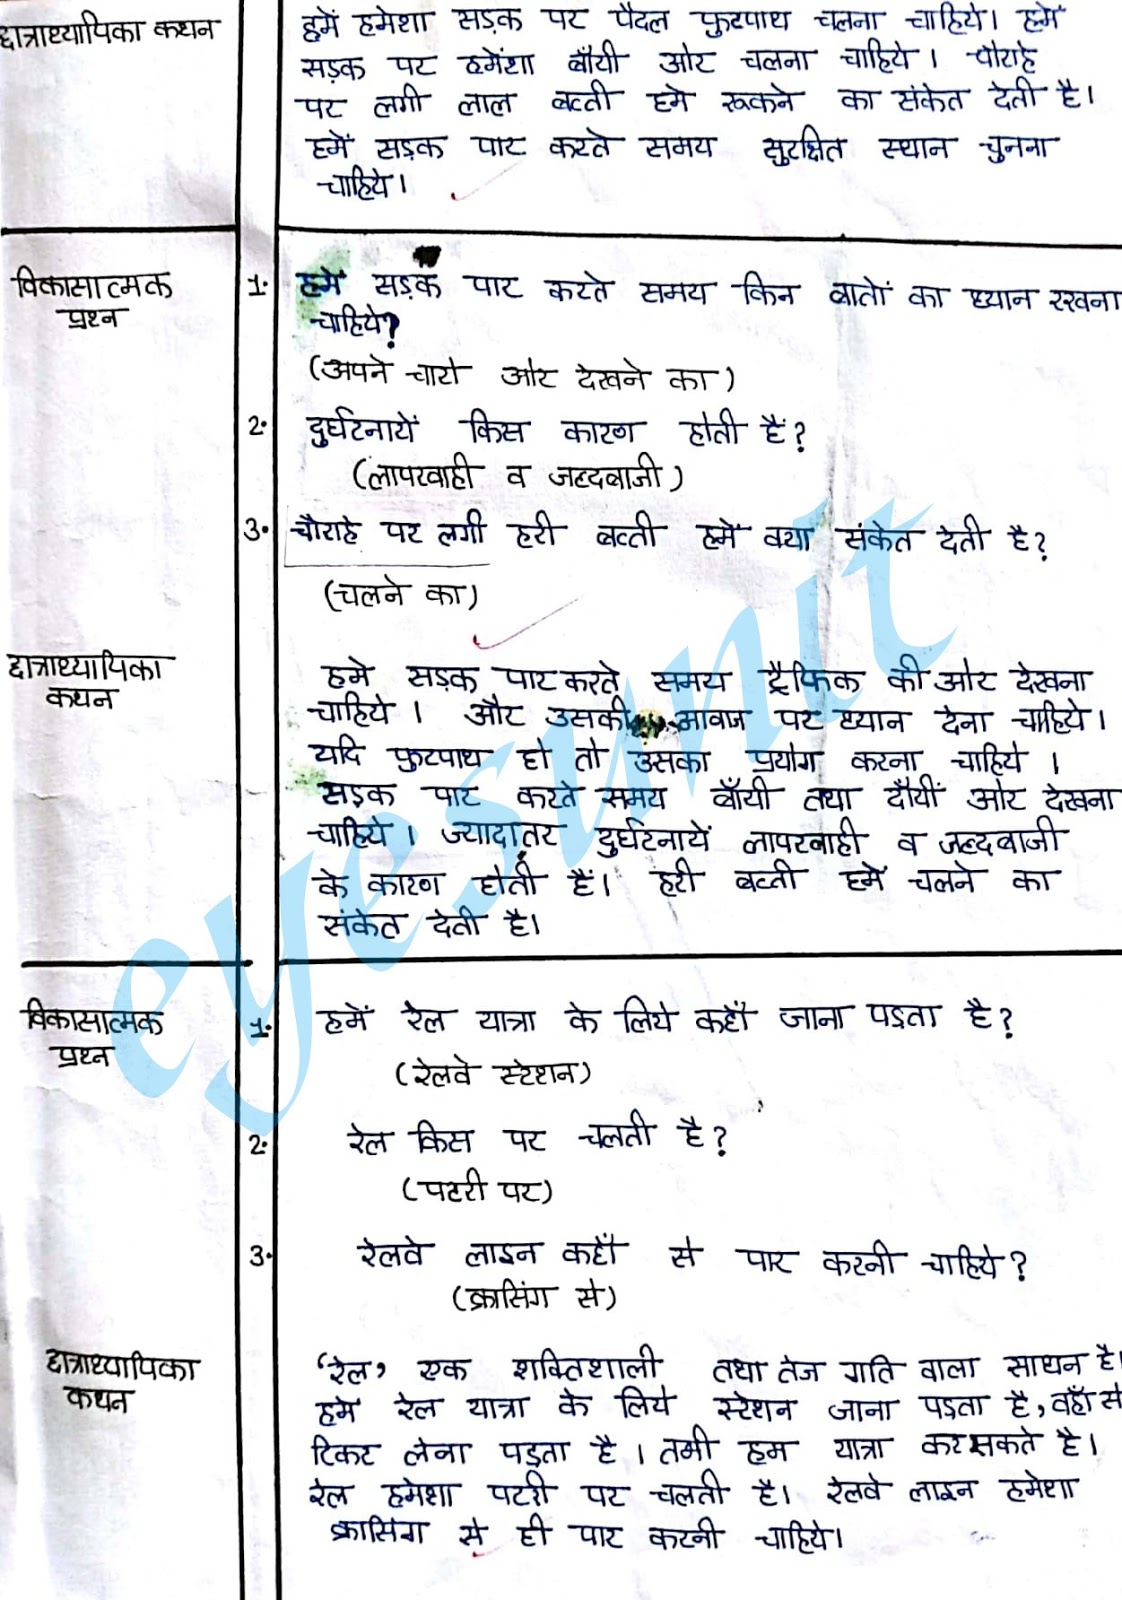 छात्राध्यापिका कथन
हमें हमेशा सड़क पर पैदल फुटपाथ चलना चाहिये। हमें
सड़क पर हमेंशा बाँयी ओर चलना चाहिये। चौराहे
पर लगी लाल बत्ती हमे रूकने का संकेत देती है।
हमें सड़क पार करते समय सुरक्षित स्थान चुनना
चाहिये।
विकासात्मक
प्रश्न
1. हमें सड़क पार करते समय किन बातों का ध्यान रखना
चाहिये?
(अपने चारो ओर देखने का)
2. दुर्घटनायें किस कारण होती हैं?
(लापरवाही व जल्दबाजी)
3. चौराहे पर लगी हरी बत्ती हमें क्या संकेत देती है?
(चलने का)
छात्राध्यायिका
कथन
हमे सड़क पार करते समय ट्रैफिक की ओर देखना
चाहिये। और उसकी आवाज पर ध्यान देना चाहिये।
यदि फुटपाथ हो तो उसका प्रयोग करना चाहिये।
सड़क पार करते समय बाँयी तथा दाँयीं ओर देखना
चाहिये। ज्यादातर दुर्घटनायें लापरवाही व जल्दबाजी
के कारण होती हैं। हरी बत्ती हमें चलने का
संकेत देती है।
विकासात्मक
प्रश्न
1. हमें रेल यात्रा के लिये कहाँ जाना पड़ता है?
(रेलवे स्टेशन)
2. रेल किस पर चलती है?
(पटरी पर)
3. रेलवे लाइन कहाँ से पार करनी चाहिये?
(क्रासिंग से)
छात्राध्यापिका
कथन
'रेल' एक शक्तिशाली तथा तेज गति वाला साधन है।
हमे रेल यात्रा के लिये स्टेशन जाना पड़ता है, वहाँ से
टिकट लेना पड़ता है। तभी हम यात्रा कर सकते है।
रेल हमेशा पटरी पर चलती है। रेलवे लाइन हमेशा
क्रासिंग से ही पार करनी चाहिये।
eyesunit